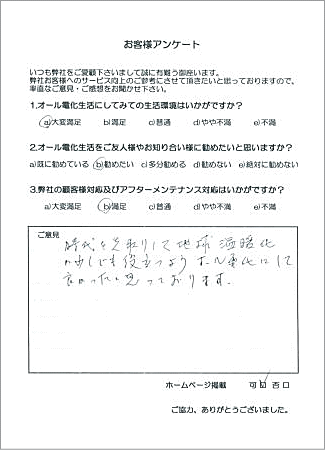 お客様アンケート
いつも弊社をご愛顧下さいまして誠に有難う御座います。
弊社お客様へのサービス向上のご参考にさせて頂きたいと思っておりますので、
率直なご意見・ご感想をお聞かせ下さい。
1.オール電化生活にしてみての生活環境はいかがですか?
a)大変満足 b)満足 c)普通 d)やや不満 e)不満
2.オール電化生活をご友人様やお知り合い様に勧めたいと思いますか?
a)既に勧めている b)勧めたい c)多分勧める d)勧めない e)絶対に勧めない
3.弊社の顧客様対応及びアフターメンテナンス対応はいかがですか?
a)大変満足 b)満足 c)普通 d)やや不満 e)不満
ご意見
時代を先取りして地球温暖化
に少しでも役立つようオール電化にして
良かったと思っております。
ホームページ掲載 可 否
ご協力、ありがとうございました。